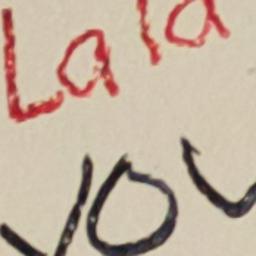 Lala
you